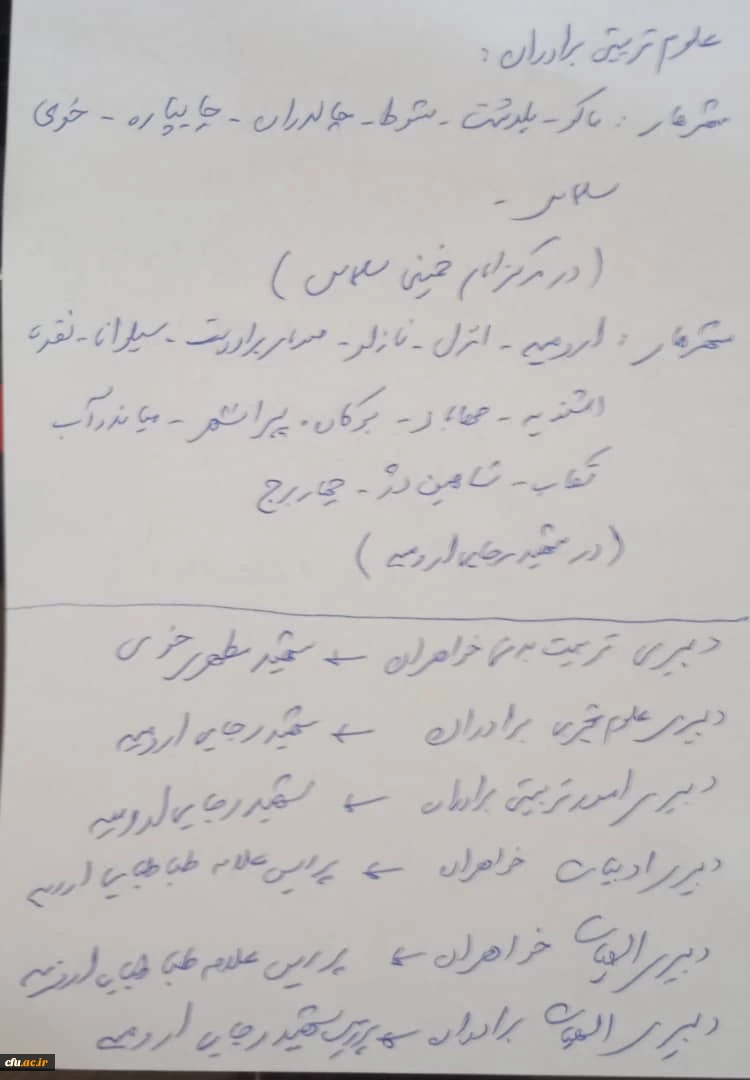 علوم تربیتی برادران :
شهرهای : ماکو - پلدشت - شوط - چالدران - چایپاره - خوی
سلماس -
(در مرکز امام خمینی سلماس)
شهرهای : ارومیه - انزل - نازلو - صومای برادوست - سیلوانا - نقده
اشنویه - مهاباد - بوکان - پیرانشهر - میاندوآب
تکاب - شاهین دژ - چهاربرج
(در شهید رجایی ارومیه)
دبیری تربیت بدنی خواهران ← شهید مطهری خوی
دبیری علوم تجربی برادران ← شهید رجایی ارومیه
دبیری امور تربیتی برادران ← شهید رجایی ارومیه
دبیری ادبیات خواهران ← پردیس علامه طباطبایی ارومیه
دبیری الهیات خواهران ← پردیس علامه طباطبایی ارومیه
دبیری الهیات برادران ← پردیس شهید رجایی ارومیه
cfu.ac.ir